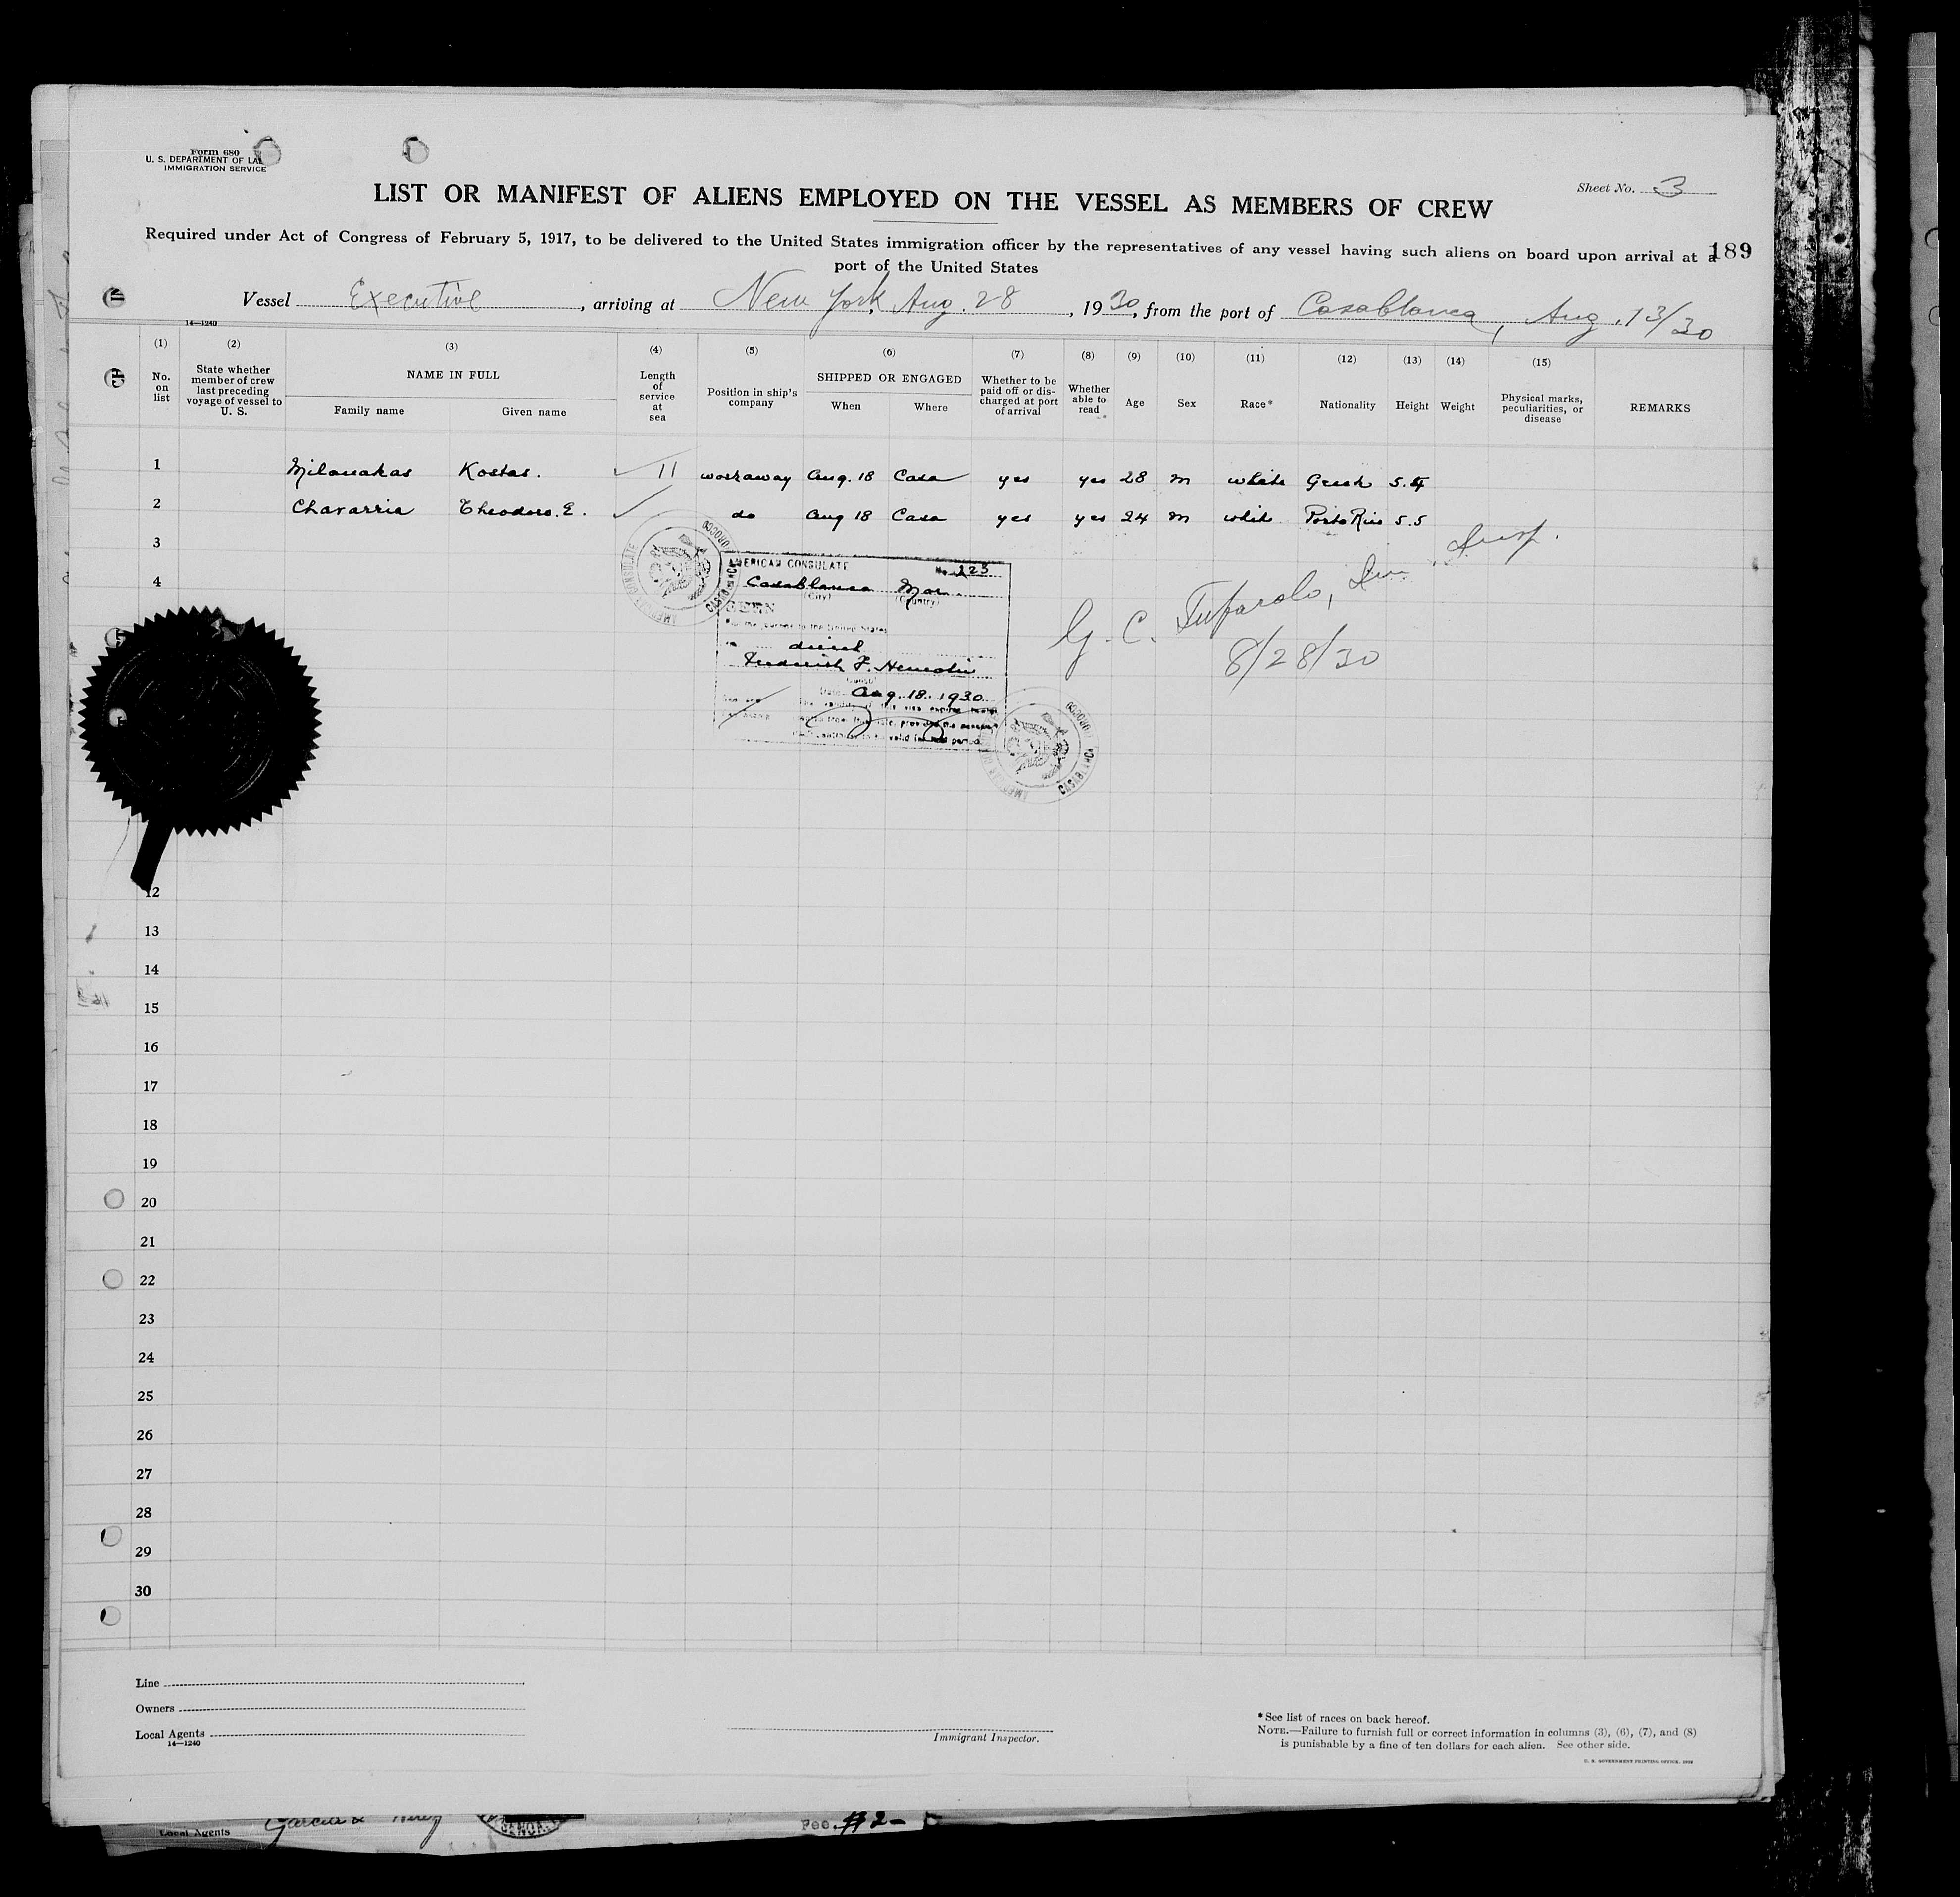 Form 680
U. S. DEPARTMENT OF LA
IMMIGRATION SERVICE
Sheet No. 3
LIST OR MANIFEST OF ALIENS EMPLOYED ON THE VESSEL AS MEMBERS OF CREW
Required under Act of Congress of February 5, 1917, to be delivered to the United States immigration officer by the representatives of any vessel having such aliens on board upon arrival at a
189
port of the United States
Vessel Executive, arriving at New York, Aug. 28, 1930, from the port of Casablanca, Aug. 13/30
14—1240
(1) (2) (3) (4) (5) (6) (7) (8) (9) (10) (11) (12) (13) (14) (15)
No. on list
State whether member of crew last preceding voyage of vessel to U. S.
NAME IN FULL
Family name Given name
Length of service at sea
Position in ship's company
SHIPPED OR ENGAGED
When Where
Whether to be paid off or discharged at port of arrival
Whether able to read
Age Sex Race* Nationality Height Weight
Physical marks, peculiarities, or disease
REMARKS
1 Milanakas Kostas. 11 workaway Aug. 18 Casa yes yes 28 m white Greek 5.4
2 Chavarria Theodoro. E. do Aug 18 Casa yes yes 24 m white Porto Rico 5.5
3
4
AMERICAN CONSULATE CASABLANCA MOROCCO
AMERICAN CONSULATE No. 123
Casablanca Mor.
(City) (Country)
SEEN
For the journey to the United States
direct
Frederick F.
Consul
Date Aug. 18. 1930
The validity of this visa expires
from this date, provided the
valid for that period.
AMERICAN CONSULATE CASABLANCA MOROCCO
G. C. Tufarolo, Imm Insp.
8/28/30
12
13
14
15
16
17
18
19
20
21
22
23
24
25
26
27
28
29
30
Line
Owners
Local Agents
14—1240
Immigrant Inspector.
* See list of races on back hereof.
NOTE.—Failure to furnish full or correct information in columns (3), (6), (7), and (8)
is punishable by a fine of ten dollars for each alien. See other side.
Local Agents Garcia &
GENOA
Fee. #2-